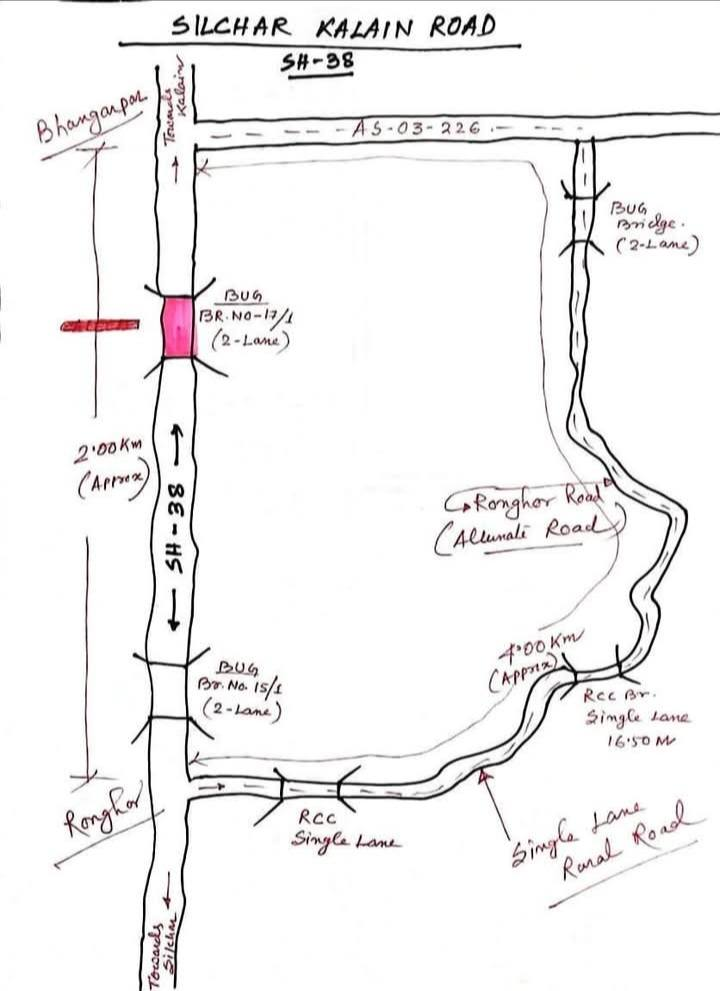 SILCHAR KALAIN ROAD
SH-38
Bhangarpar
Towards
Kalain
AS-03-226
BUG
Bridge.
(2-Lane)
BUG
BR.NO-17/1
(2-Lane)
2.00 Km
(Approx)
SH-38
Ronghor Road
(Allunate Road)
4.00 Km
(Approx)
BUG
Br. No. 15/1
(2-Lane)
RCC Br.
Single Lane
16.50 M
Ronghor
RCC
Single Lane
Single Lane
Rural Road
Towards
Silchar